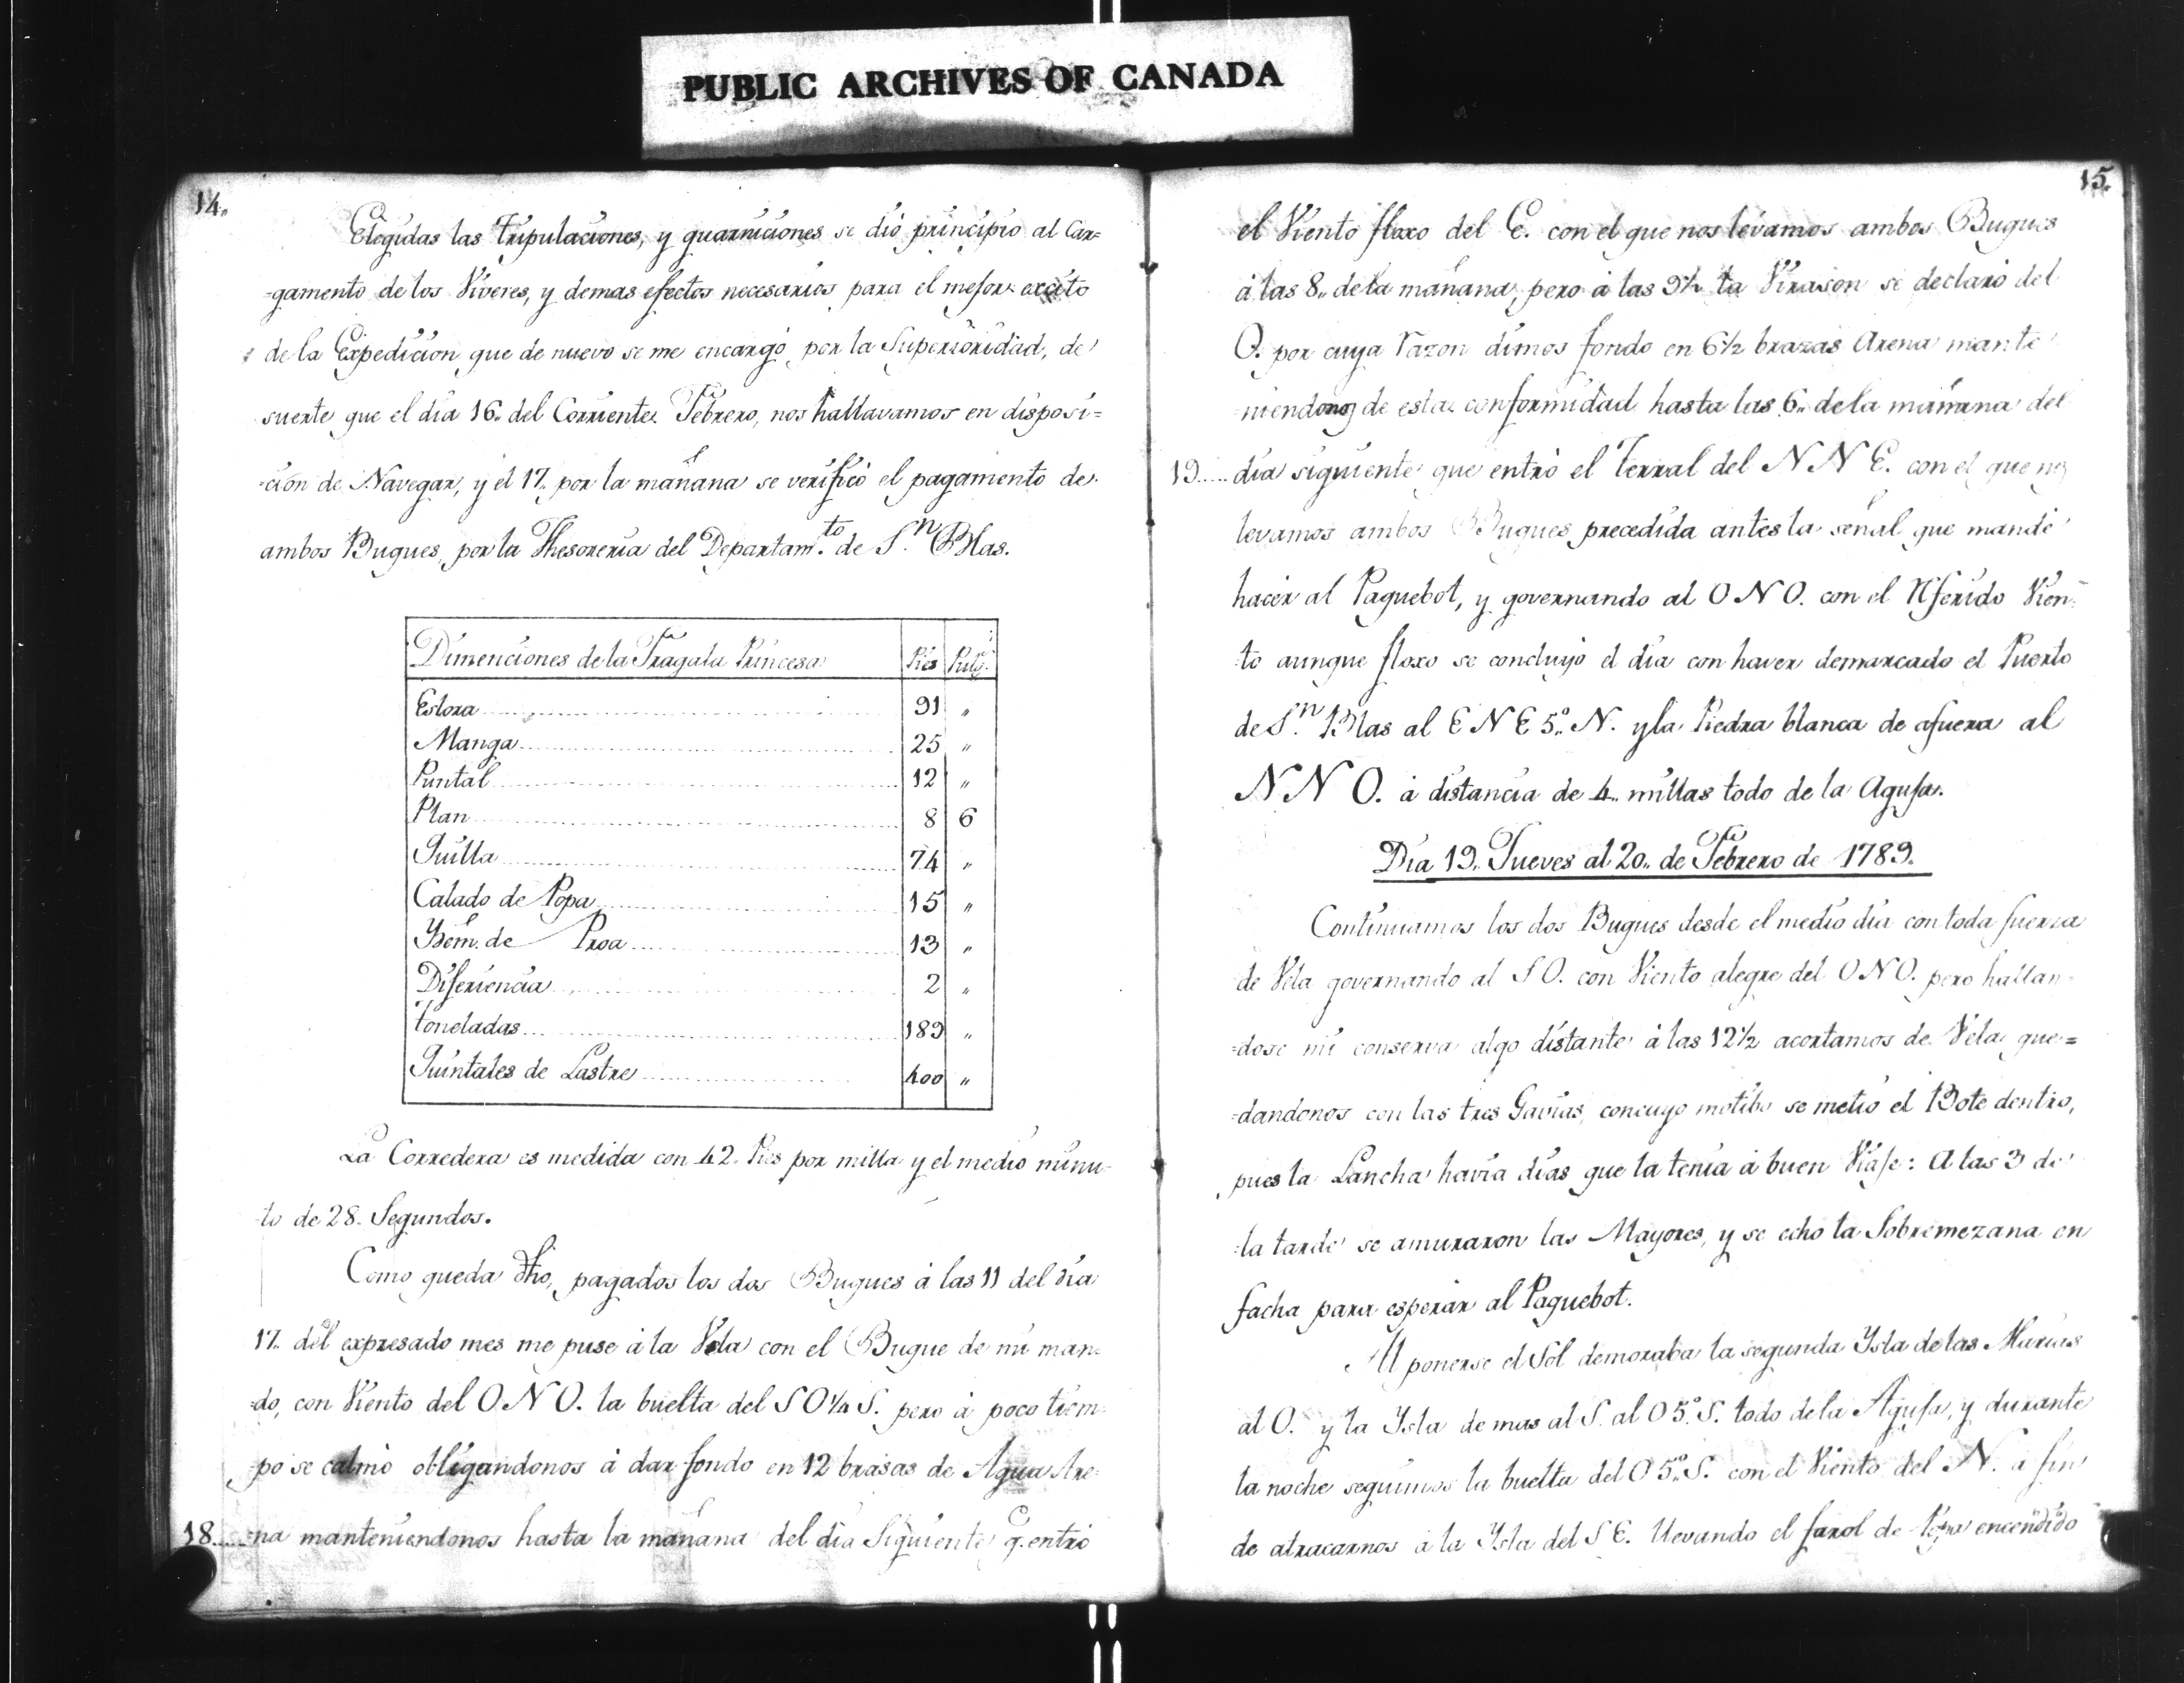 PUBLIC ARCHIVES OF CANADA
14.
Elegidas las tripulaciones, y guarniciones se dió principio al Car=
=gamento de los Viveres, y demas efectos necesarios para el mejor exêito
de la Expedicion que de nuevo se me encargó por la Superioridad, de
suerte que el dia 16,, del Corriente Febrero, nos hallavamos en disposi=
=cion de Navegar, y el 17 por la mañana se verificó el pagamento de
ambos Buques, por la Thesoreria del Departam.to de S.n Blas.
Dimenciones de la Fragata Princesa Pies Pulg.s
Eslora 91 ,,
Manga 25 ,,
Puntal 12 ,,
Plan 8 6
Quilla 74 ,,
Calado de Popa 15 ,,
Ybem. de Proa 13 ,,
Diferiencia 2 ,,
toneladas 189 ,,
Quintales de Lastre 400 ,,
La Corredera es medida con 42 Pies por milla y el medio minu-
to de 28 Segundos.
Como queda dho, pagados los dos Buques á las 11 del dia
17,, del expresado mes me puse á la Vela con el Buque de mi man-
=do, con Viento del ONO. la buelta del SO1/4S. pero á poco tiem-
=po se calmó obligandonos á dar fondo en 12 brasas de Agua Are-
18.....=na manteniendonos hasta la mañana del dia Siguiente q. entró
15.
el Viento floxo del E. con el que nos levamos ambos Buques
á las 8,, de la mañana, pero á las 9½ la Virason se declaró del
O. por cuya razon dimos fondo en 6½ brazas Arena mante
niendonos de esta conformidad hasta las 6,, de la mañana del
19..... dia siguiente que entró el terral del NNE. con el que nos
levamos ambos Buques precedida antes la señal que mandé
hacer al Paquebot, y governando al ONO. con el Rferido Vien-
=to aunque floxo se concluyó el dia con haver demarcado el Puerto
de S.n Blas al ENE 5,,° N. y la Piedra blanca de afuera al
NNO. á distancia de 4,, millas todo de la Aguja.
Dia 19,, Jueves al 20,, de Febrero de 1789.
Continuamos los dos Buques desde el medio dia con toda fuerza
de Vela governando al SO. con Viento alegre del ONO. pero hallan-
=dose mi conserva algo distante á las 12½ acortamos de Vela, que=
=dandonos con las tres Gavias, con cuyo motibo se metió el Bote dentro,
pues la Lancha havia dias que la tenia á buen Viaje: A las 3 de
la tarde se amuraron las Mayores, y se echo la Sobremezana en
facha para esperar al Paquebot.
Al ponerse el Sol demoraba la segunda Ysla de las Marias
al O. y la Ysla de mas al S. al O 5.° S. todo de la Aguja, y durante
la noche seguimos la buelta del O 5.° S. con el Viento del N. a fin
de atracarnos á la Ysla del SE. llevando el farol de Popa encendido